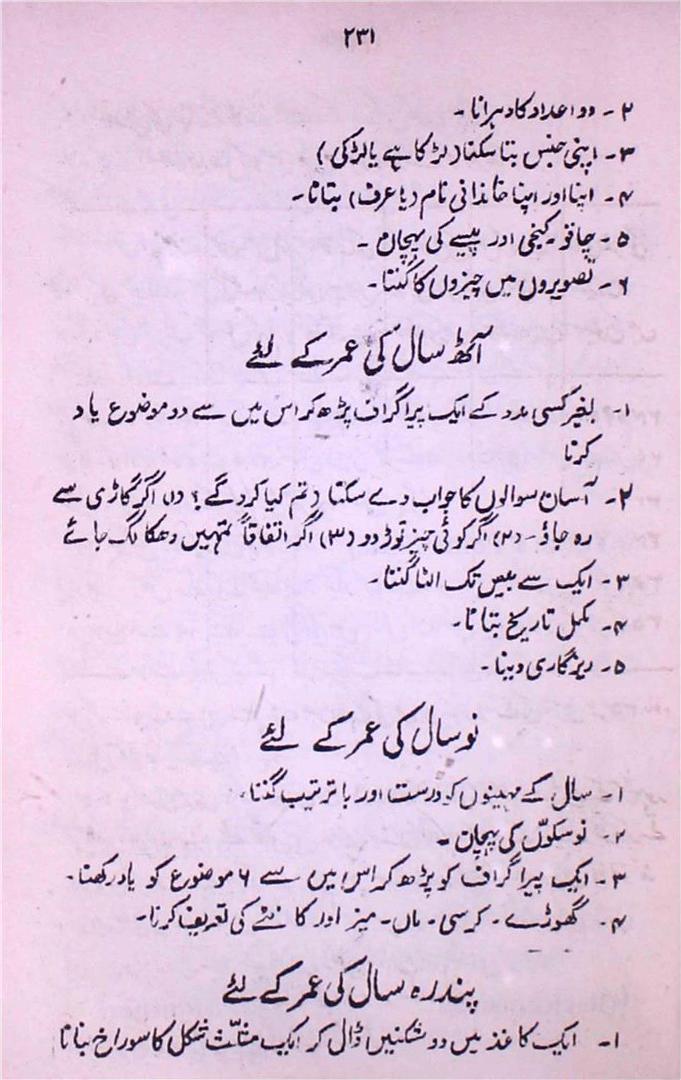 ۲۳۱
۲- دو اعداد کا دہرانا -
۳- اپنی جنس بتا سکنا (لڑکا ہے یا لڑکی)
۴- اپنا اور اپنا خاندانی نام (یا عرف) بتانا -
۵- چاقو - کنجی اور پیسے کی پہچان -
۶- تصویروں میں چیزوں کا گننا -
آٹھ سال کی عمر کے لئے
۱- بغیر کسی مدد کے ایک پیراگراف پڑھ کر اس میں سے دو موضوع یاد
کرنا
۲- آسان سوالوں کا جواب دے سکنا (تم کیا کرو گے؟ (۱) اگر گاڑی سے
رہ جاؤ - (۲) اگر کوئی چیز توڑ دو (۳) اگر اتفاقاً تمہیں دھکا لگ جائے
۳- ایک سے بیس تک الٹا گننا -
۴- مکمل تاریخ بتانا -
۵- ریزگاری دینا -
نو سال کی عمر کے لئے
۱- سال کے مہینوں کو درست اور با ترتیب گننا -
۲- نو سکوں کی پہچان -
۳- ایک پیراگراف کو پڑھ کر اس میں سے ۶ موضوع کو یاد رکھنا -
۴- گھوڑے - کرسی - ماں - میز اور کانٹے کی تعریف کرنا -
پندرہ سال کی عمر کے لئے
۱- ایک کاغذ میں دو شکنیں ڈال کر ایک مثلث شکل کا سوراخ بنانا